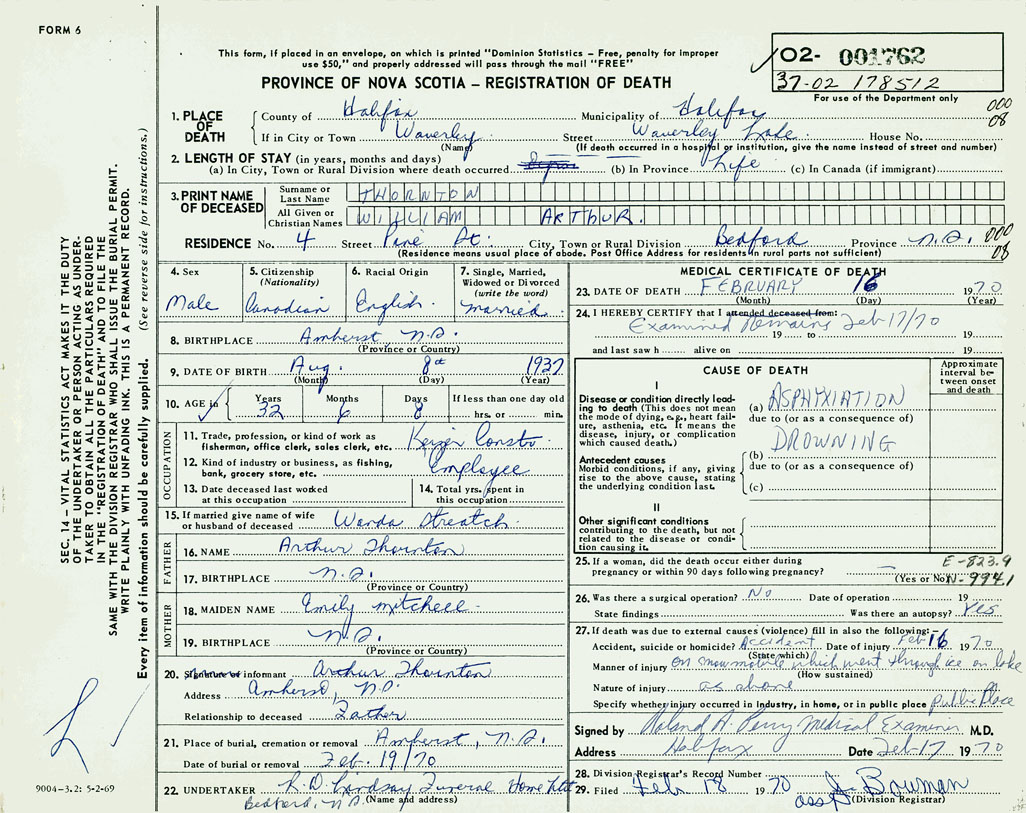 FORM 6
This form, if placed in an envelope, on which is printed "Dominion Statistics – Free, penalty for improper
use $50," and properly addressed will pass through the mail "FREE"
PROVINCE OF NOVA SCOTIA – REGISTRATION OF DEATH
O2- 001762
37-02 178512
For use of the Department only
000
08
SEC. 14 – VITAL STATISTICS ACT MAKES IT THE DUTY
OF THE UNDERTAKER OR PERSON ACTING AS UNDER-
TAKER TO OBTAIN ALL THE PARTICULARS REQUIRED
IN THE "REGISTRATION OF DEATH" AND TO FILE THE
SAME WITH THE DIVISION REGISTRAR WHO SHALL ISSUE THE BURIAL PERMIT.
WRITE PLAINLY WITH UNFADING INK. THIS IS A PERMANENT RECORD.
Every item of information should be carefully supplied. (See reverse side for instructions.)
1. PLACE OF DEATH
County of Halifax Municipality of Halifax
If in City or Town Waverley Street Waverley Lake House No.
(Name) (If death occurred in a hospital or institution, give the name instead of street and number)
2. LENGTH OF STAY (in years, months and days)
(a) In City, Town or Rural Division where death occurred (b) In Province Life (c) In Canada (if immigrant)
3. PRINT NAME OF DECEASED
Surname or Last Name THORNTON
All Given or Christian Names WILLIAM ARTHUR.
RESIDENCE No. 4 Street Pine St. City, Town or Rural Division Bedford Province N.S. 000
08
(Residence means usual place of abode. Post Office Address for residents in rural parts not sufficient)
4. Sex Male
5. Citizenship (Nationality) Canadian
6. Racial Origin English
7. Single, Married, Widowed or Divorced (write the word) married
8. BIRTHPLACE Amherst N.S.
(Province or Country)
9. DATE OF BIRTH Aug. 8th 1937
(Month) (Day) (Year)
10. AGE in Years 32 Months 6 Days 8 If less than one day old hrs. or min.
OCCUPATION
11. Trade, profession, or kind of work as
fisherman, office clerk, sales clerk, etc. Constr.
12. Kind of industry or business, as fishing,
bank, grocery store, etc. Employee
13. Date deceased last worked
at this occupation
14. Total yrs. spent in
this occupation
15. If married give name of wife
or husband of deceased Wanda Streatch
FATHER
16. NAME Arthur Thornton
17. BIRTHPLACE N.S.
(Province or Country)
MOTHER
18. MAIDEN NAME Emily Mitchell
19. BIRTHPLACE N.S.
(Province or Country)
20. Signature of informant Arthur Thornton
Address Amherst, N.S.
Relationship to deceased Father
21. Place of burial, cremation or removal Amherst, N.S.
Date of burial or removal Feb. 19/70
22. UNDERTAKER Lindsay Funeral Home Ltd
Bedford, N.S. (Name and address)
MEDICAL CERTIFICATE OF DEATH
23. DATE OF DEATH FEBRUARY 16 1970
(Month) (Day) (Year)
24. I HEREBY CERTIFY that I attended deceased from:
Examined Remains Feb 17/70
19 to 19
and last saw h alive on 19
CAUSE OF DEATH
Approximate interval between onset and death
I
Disease or condition directly lead-
ing to death (This does not mean
the mode of dying, e.g., heart fail-
ure, asthenia, etc. It means the
disease, injury, or complication
which caused death.)
(a) ASPHYXIATION
due to (or as a consequence of)
DROWNING
Antecedent causes
Morbid conditions, if any, giving
rise to the above cause, stating
the underlying condition last.
(b)
due to (or as a consequence of)
(c)
II
Other significant conditions
contributing to the death, but not
related to the disease or condi-
tion causing it.
25. If a woman, did the death occur either during
pregnancy or within 90 days following pregnancy? –
(Yes or No)
E-823.9
N-994.1
26. Was there a surgical operation? No Date of operation 19
State findings Was there an autopsy? Yes
27. If death was due to external causes (violence) fill in also the following:–
Accident, suicide or homicide? Accident Date of injury Feb 16 1970
(State which)
Manner of injury on snowmobile which went through ice on lake
(How sustained)
Nature of injury as above
Specify whether injury occurred in Industry, in home, or in public place public Place
Signed by Roland A. Perry Medical Examiner M.D.
Address Halifax Date Feb 17 1970
28. Division Registrar's Record Number
29. Filed Feb 18 1970 Bowman
(Division Registrar)
9004-3.2: 5-2-69